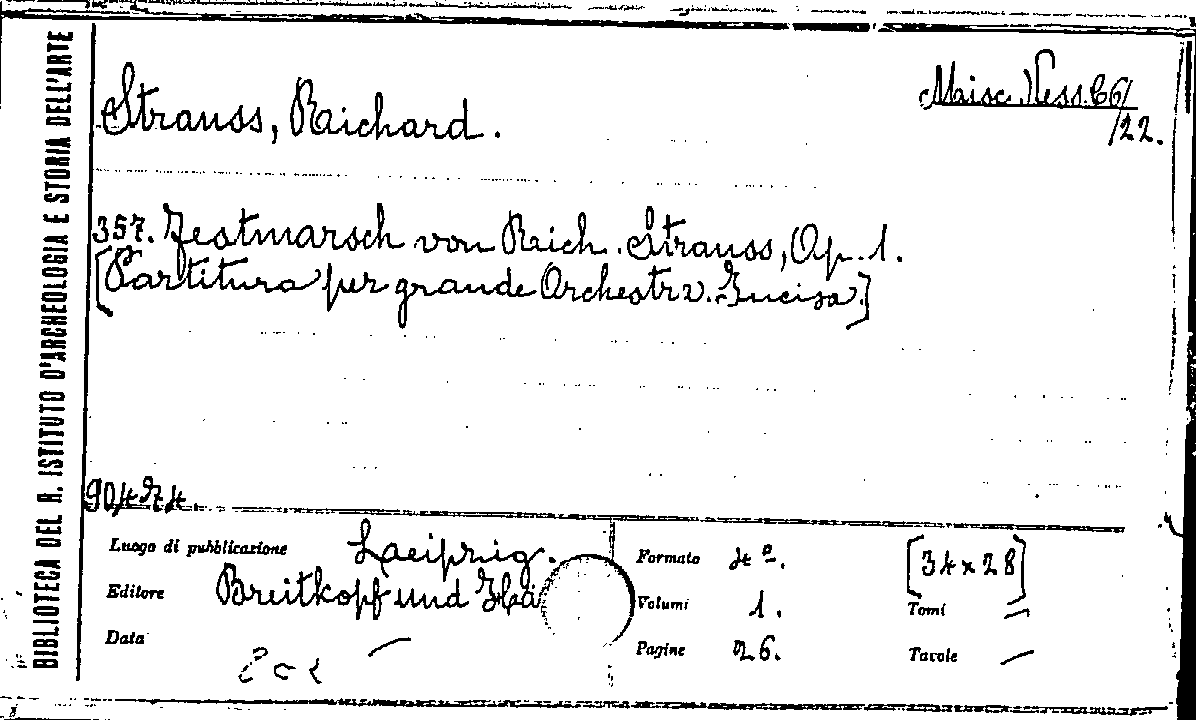 BIBLIOTECA DEL R. ISTITUTO D'ARCHEOLOGIA E STORIA DELL'ARTE
Strauss, Raichard.
Misc. Vess. 66/
/22.
357. Festmarsch von Raich. Strauss, Op. 1.
[Partitura per grande Orchestra. Incisa]
90474.
Luogo di pubblicazione Laeipzig.
Editore Breitkopf und Hä
Data —
Formato 4º. [34 x 28]
Volumi 1. Tomi =
Pagine 26. Tavole —